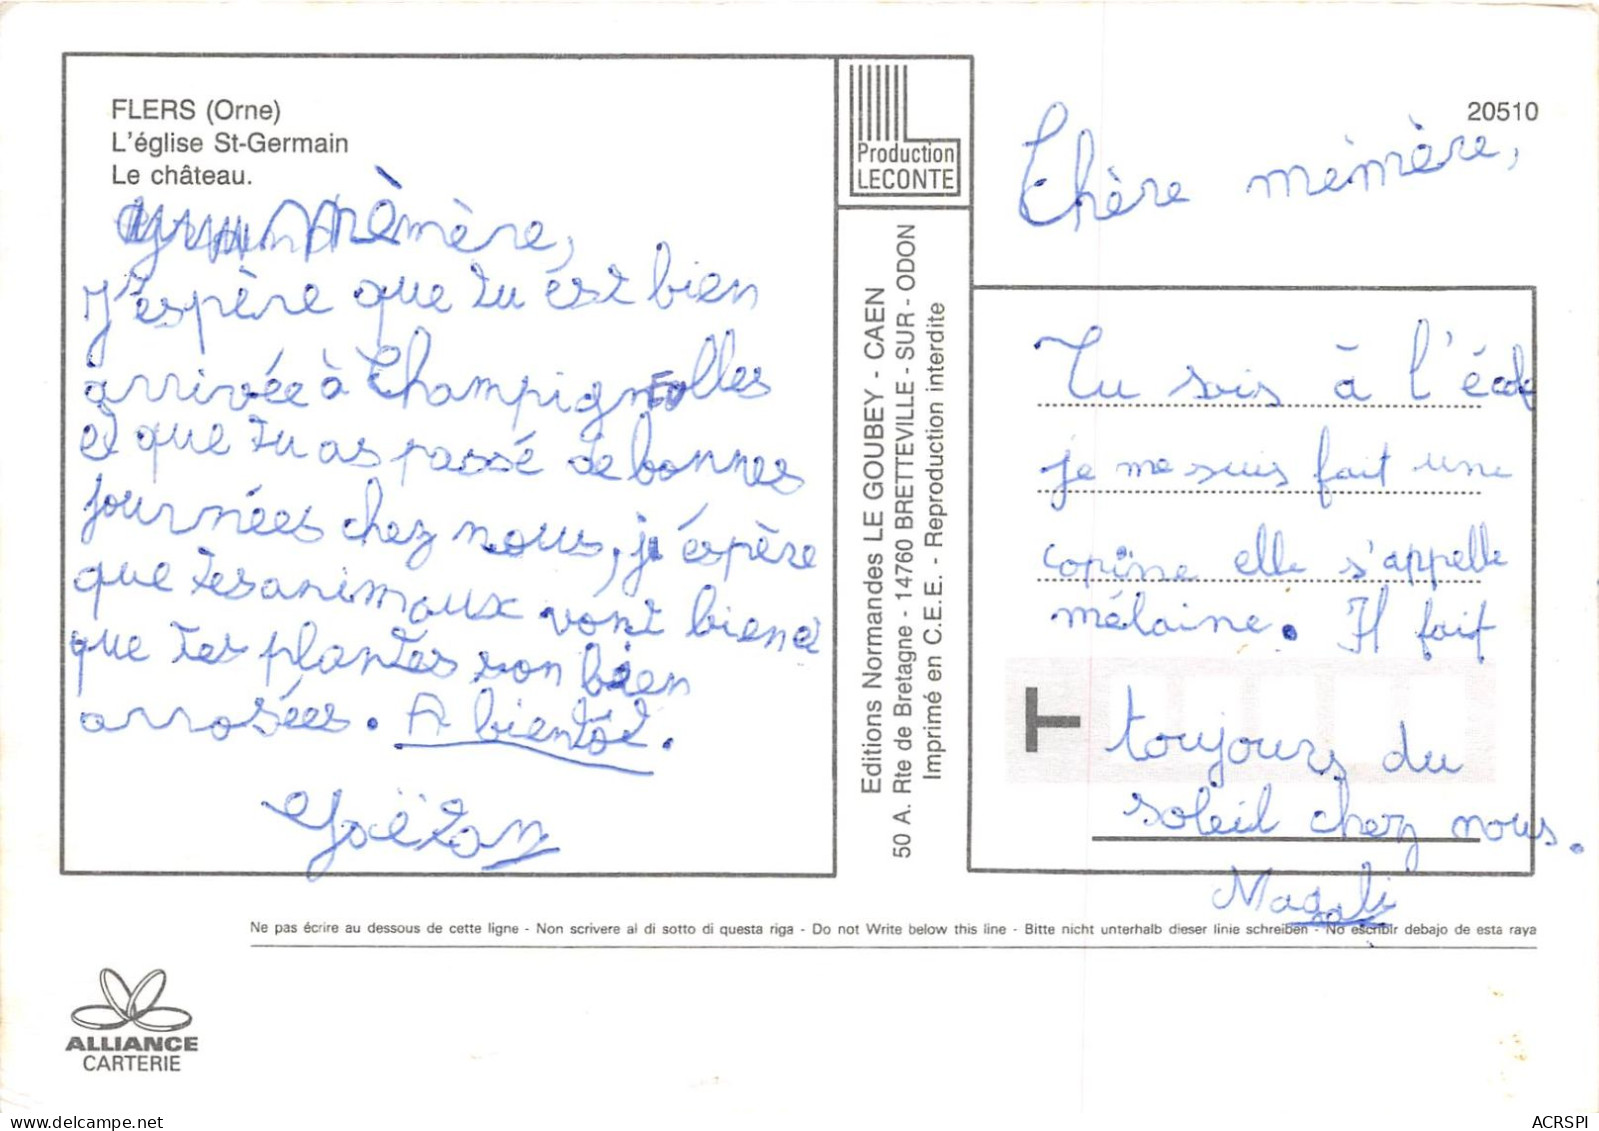 FLERS (Orne)
L'église St-Germain
Le château.
Mèmère,
J'espère que tu est bien
arrivée à Champignolles
et que tu as passé de bonnes
journées chez nous, j'éspère
que tes animaux vont bien e
que tes plantes son bien
arrosées. A bientôt.
Gaëtan
Production
LECONTE
Editions Normandes LE GOUBEY - CAEN
50 A. Rte de Bretagne - 14760 BRETTEVILLE - SUR - ODON
Imprimé en C.E.E. - Reproduction interdite
20510
Chère mémère,
Tu sais à l'école
je me suis fait une
copine elle s'appelle
mélaine. Il fait
T
toujours du
soleil chez nous.
Magali
Ne pas écrire au dessous de cette ligne - Non scrivere al di sotto di questa riga - Do not Write below this line - Bitte nicht unterhalb dieser linie schreiben - No escribir debajo de esta raya
ALLIANCE
CARTERIE
ACRSPI